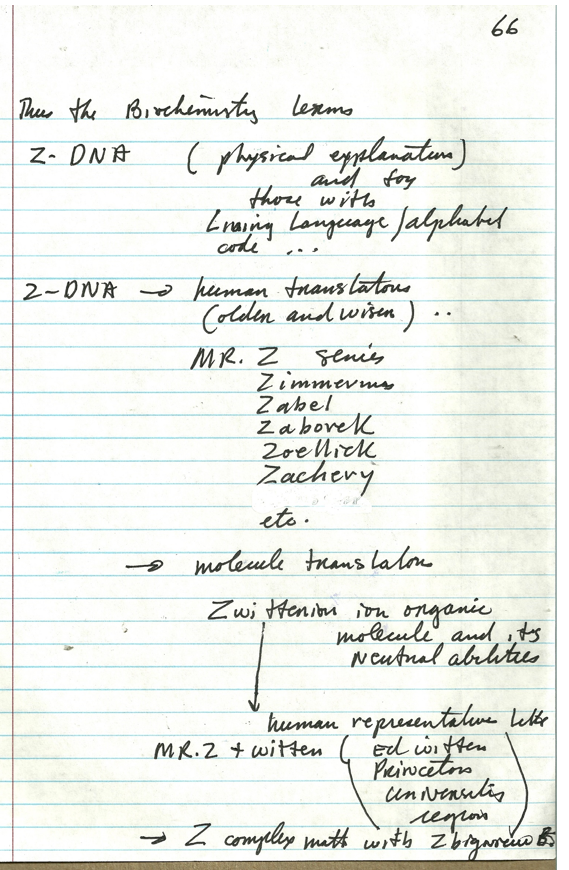 66
Thus the Biochemistry lesson
Z-DNA (physical explanation)
and for
those with
Living Language/alphabet
code ...
Z-DNA → human translators
(older and wiser) ..
MR. Z series
Zimmerman
Zabel
Zaborek
Zoellick
Zachery
etc.
→ molecule translator
Zwitterion ion organic
molecule and its
Neutral abilities
human representative like
MR. Z + witten ( Ed witten
Princeton
University
region )
→ Z complex math with Zbigniew